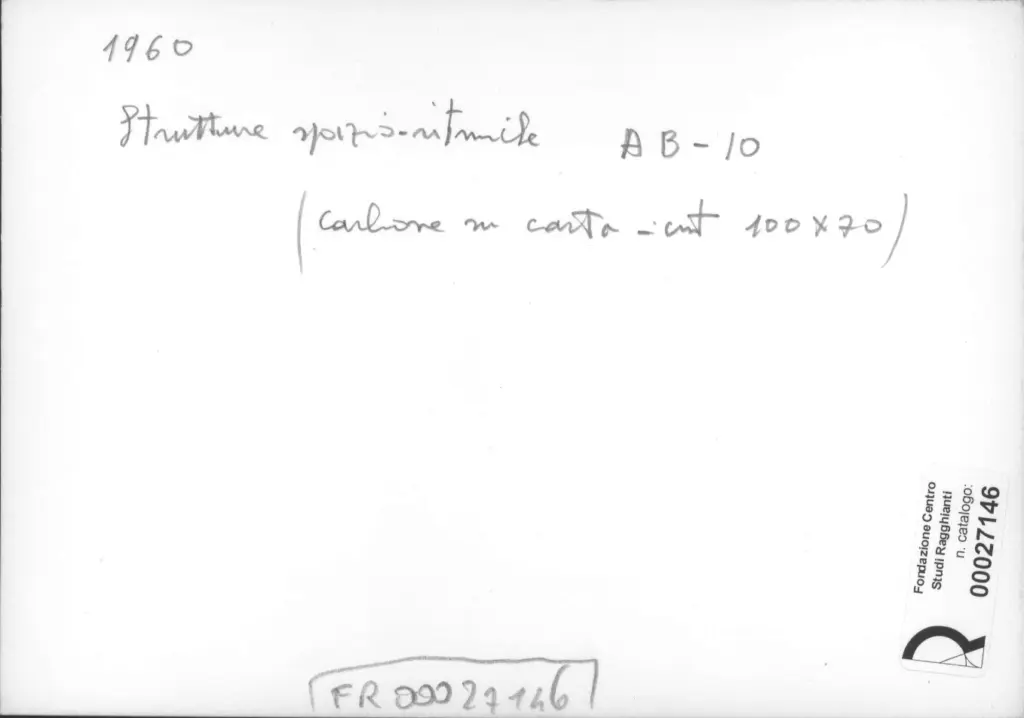 1960
Strutture spazio-ritmiche AB-10
(Carbone su carta - cmt 100 x 70)
Fondazione Centro
Studi Ragghianti
n. catalogo:
00027146
FR 00027146